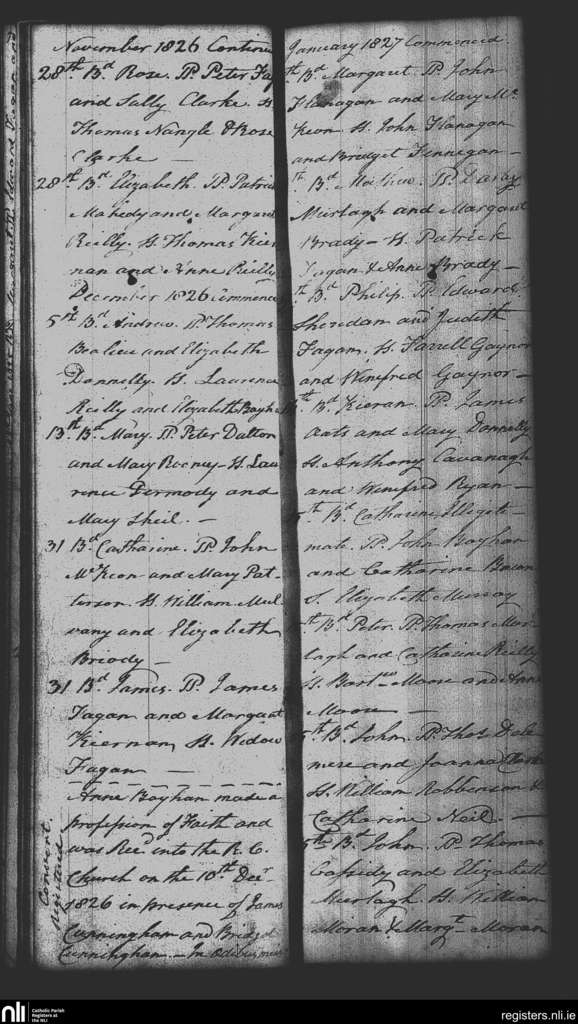 November 1826 Continu
28th Bd Rose. Pp Peter Fa
and Sally Clarke H.
Thomas Nangle & Rose
Clarke —
28th Bd Elizabeth. Pp Patrick
Mahedy and Margaret
Reilly. H Thomas Kier
nan and Anne Reilly
December 1826 Commenced
5th Bd Andrew. Pp Thomas
and Elizabeth
Donnelly. H. Laurence
Reilly and Elizabeth
13th Bd Mary. Pp Peter Dalton
and Mary Rooney - H. Lau
rence Dermody and
Mary Sheil. —
31 Bd Catharine. Pp John
McKeon and Mary Pat-
terson. H. William Mul
vany and Elizabeth
Briody —
31 Bd James. Pp James
Fagan and Margaret
Kiernan, H. Widow
Fagan —
Anne Boylan made a
profession of Faith and
was Recd into the R. C.
Church on the 10th Decr
1826 in presence of James
Cunningham and Bridget
Cunningham. —
Convert.
registered
January 1827 Commenced
th Bd Margaret Pp John
Flanagan and Mary Mc
Keon. H. John Flanagan
and Bridget Finnegan —
th Bd Mathew. Pp Darag
Murtagh and Margaret
Brady — H. Patrick
Fagan & Anne Brady —
th Bd Philip. Pp Edward
Sheridan and Judith
Fagan. H. Farrell Gaynor
and Winefred Gaynor —
th Bd Kieran. Pp James
and Mary Donnelly
H. Anthony Cavanagh
and Winefred Ryan —
th Bd Catharine Illegeti-
mate. Pp John Boylan
and Catharine
S. Elizabeth Murray
th Bd Peter. Pp Thomas Mur
tagh and Catharine Reilly
H. Bartmew Moore and Anne
Moore —
5th Bd John. Pp Thos Dela
mere and Joanna
H. William Robbinson &
Catharine Neil. —
5th Bd John. Pp Thomas
Cassidy and Elizabeth
Murtagh. H. William
Moran & Margt Moran
nli
Catholic Parish
Registers at
the NLI
registers.nli.ie